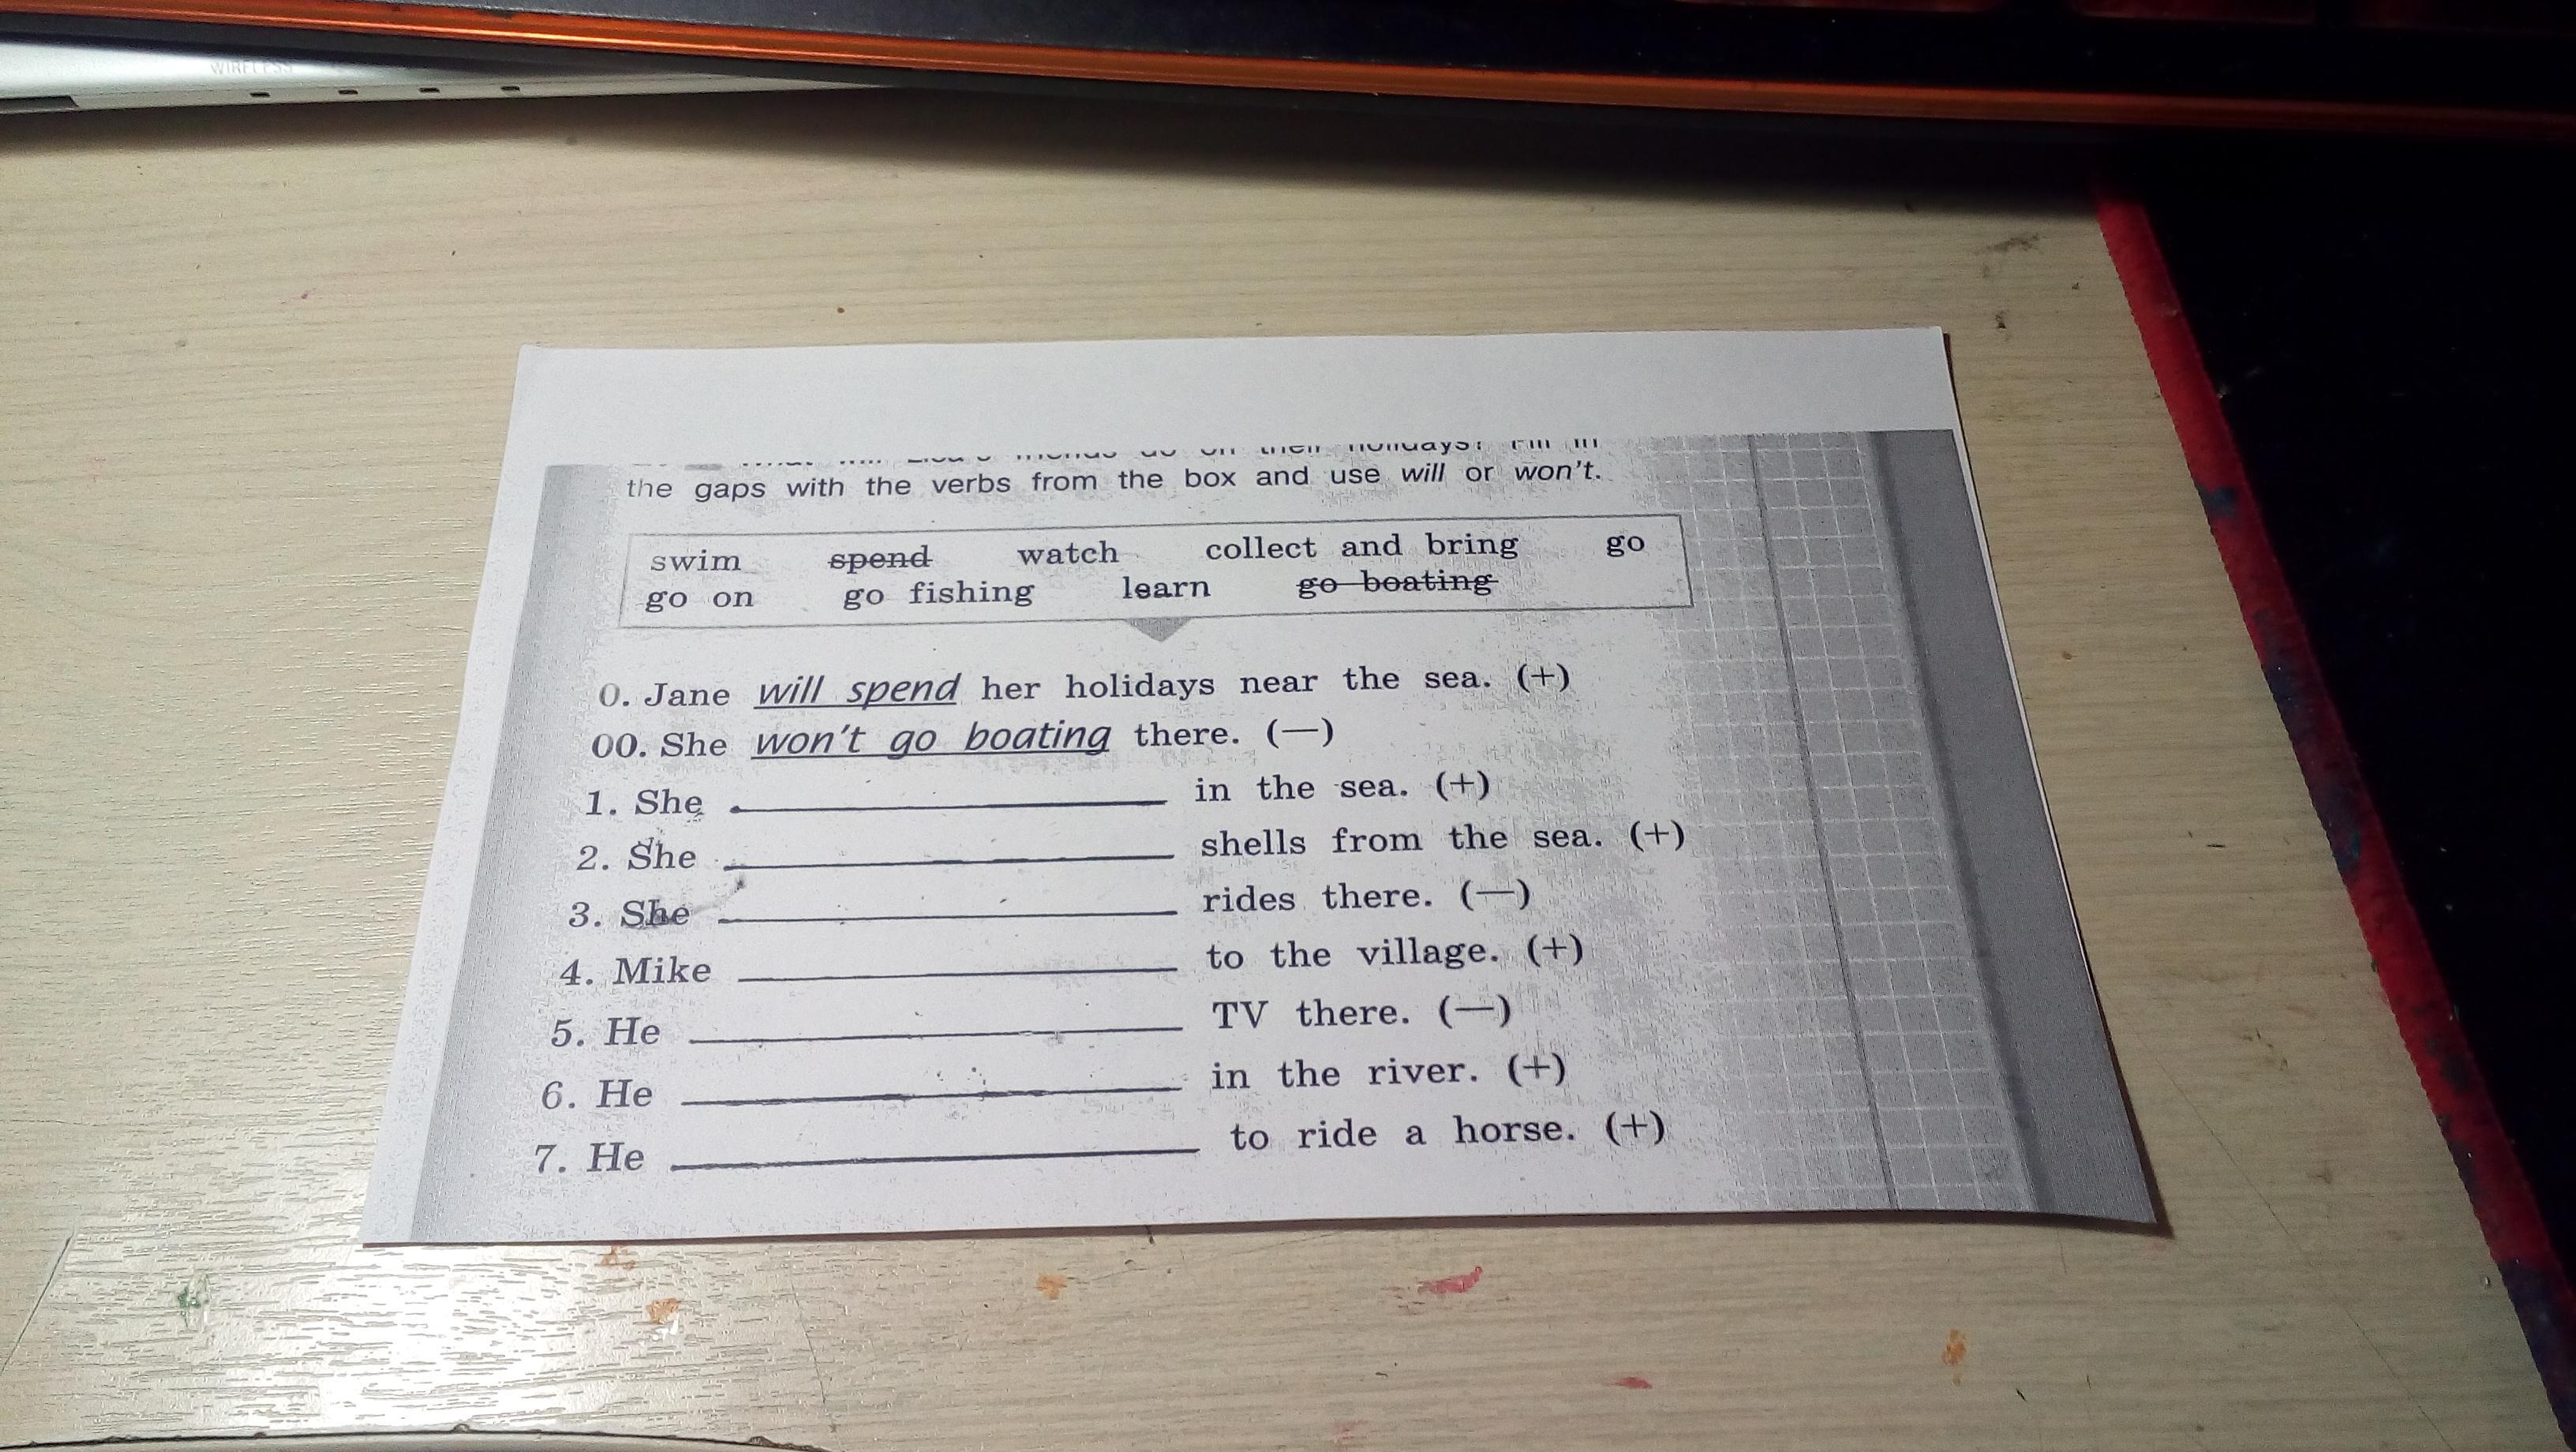 WIRELESS
What will Lisa's friends do on their holidays? Fill in
the gaps with the verbs from the box and use will or won't.
swim spend watch collect and bring go
go on go fishing learn go boating
0. Jane will spend her holidays near the sea. (+)
00. She won't go boating there. (—)
1. She in the sea. (+)
2. She shells from the sea. (+)
3. She rides there. (—)
4. Mike to the village. (+)
5. He TV there. (—)
6. He in the river. (+)
7. He to ride a horse. (+)